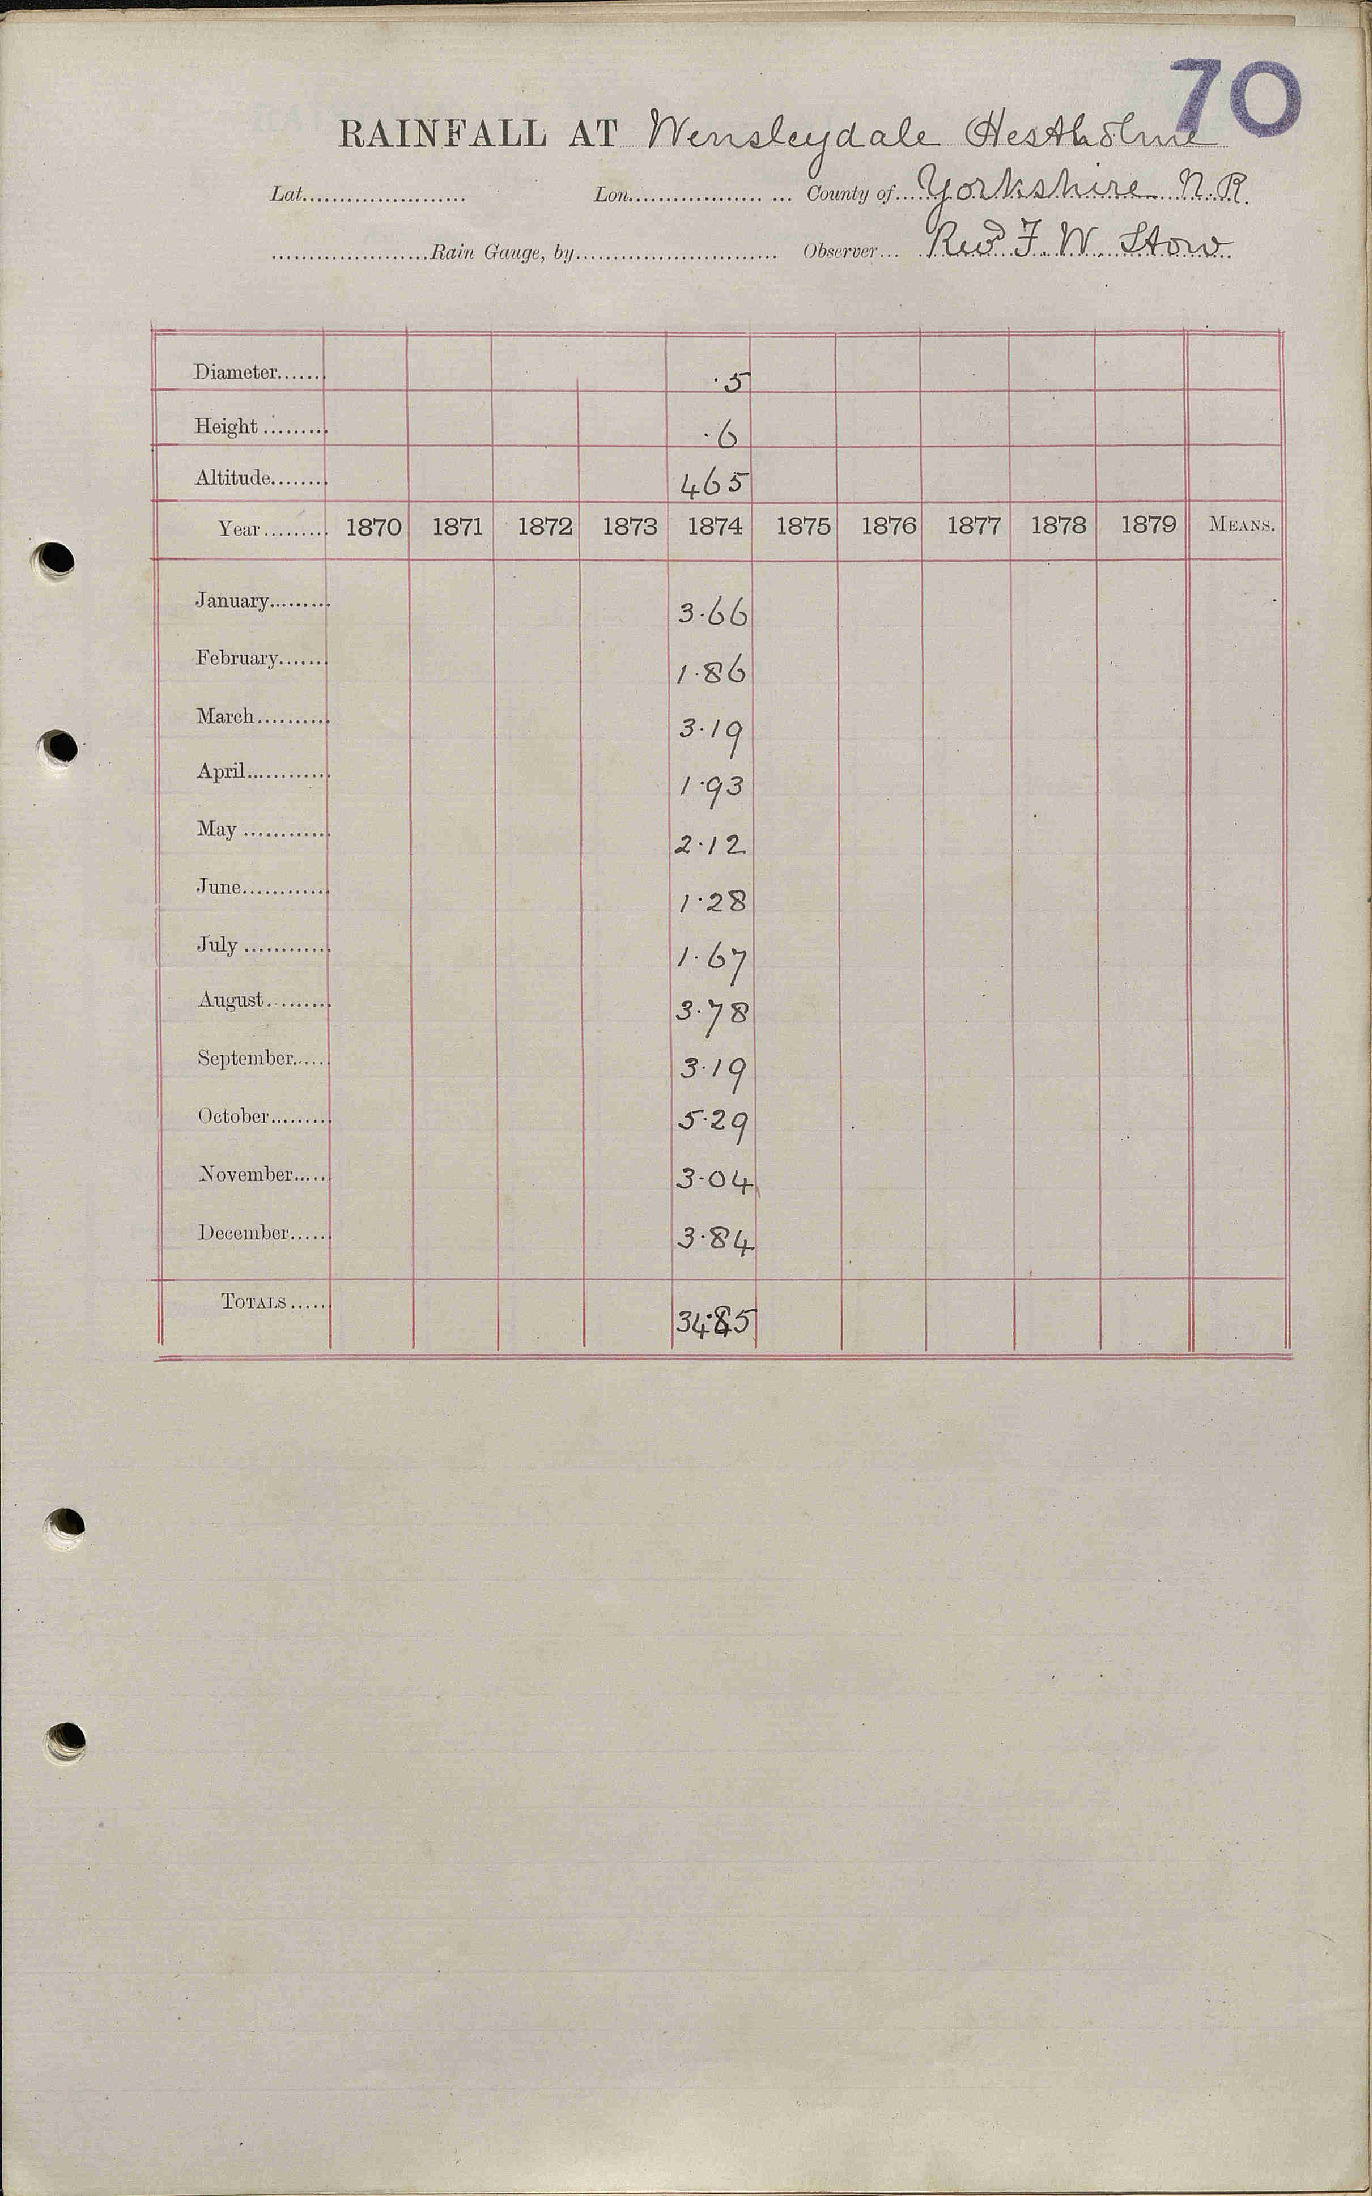 70
RAINFALL AT Wensleydale Hestholme
Lat. Lon. County of Yorkshire N.R.
Rain Gauge, by Observer Revd F. W. Stow
Diameter ·5
Height ·6
Altitude 465
Year 1870 1871 1872 1873 1874 1875 1876 1877 1878 1879 MEANS.
January 3·66
February 1·86
March 3·19
April 1·93
May 2·12
June 1·28
July 1·67
August 3·78
September 3·19
October 5·29
November 3·04
December 3·84
TOTALS 34·85